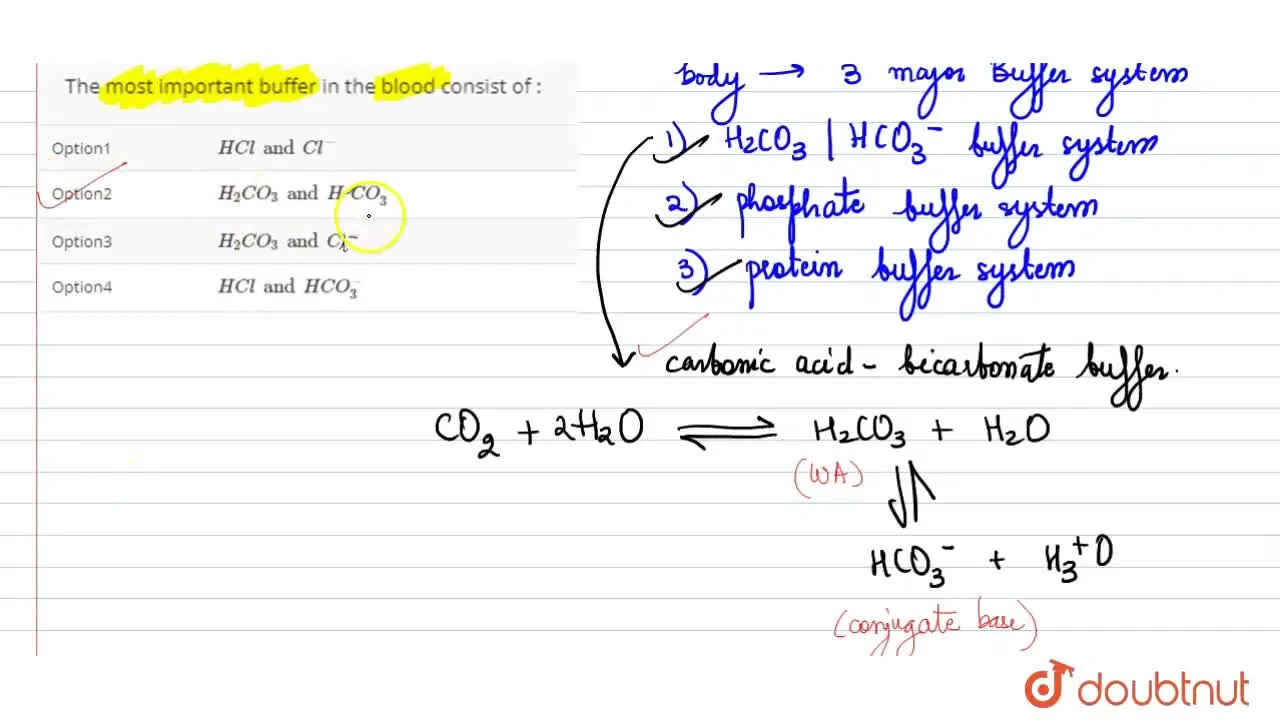 The most important buffer in the blood consist of :
Option1 HCl and Cl⁻
Option2 H₂CO₃ and H CO₃
Option3 H₂CO₃ and Cl⁻
Option4 HCl and HCO₃⁻
body → 3 major Buffer system
1) H₂CO₃ | HCO₃⁻ buffer system
2) phosphate buffer system
3) protein buffer system
carbonic acid - bicarbonate buffer.
CO₂ + 2H₂O ⇌ H₂CO₃ + H₂O
(WA)
⇌
HCO₃⁻ + H₃⁺O
(conjugate base)
doubtnut